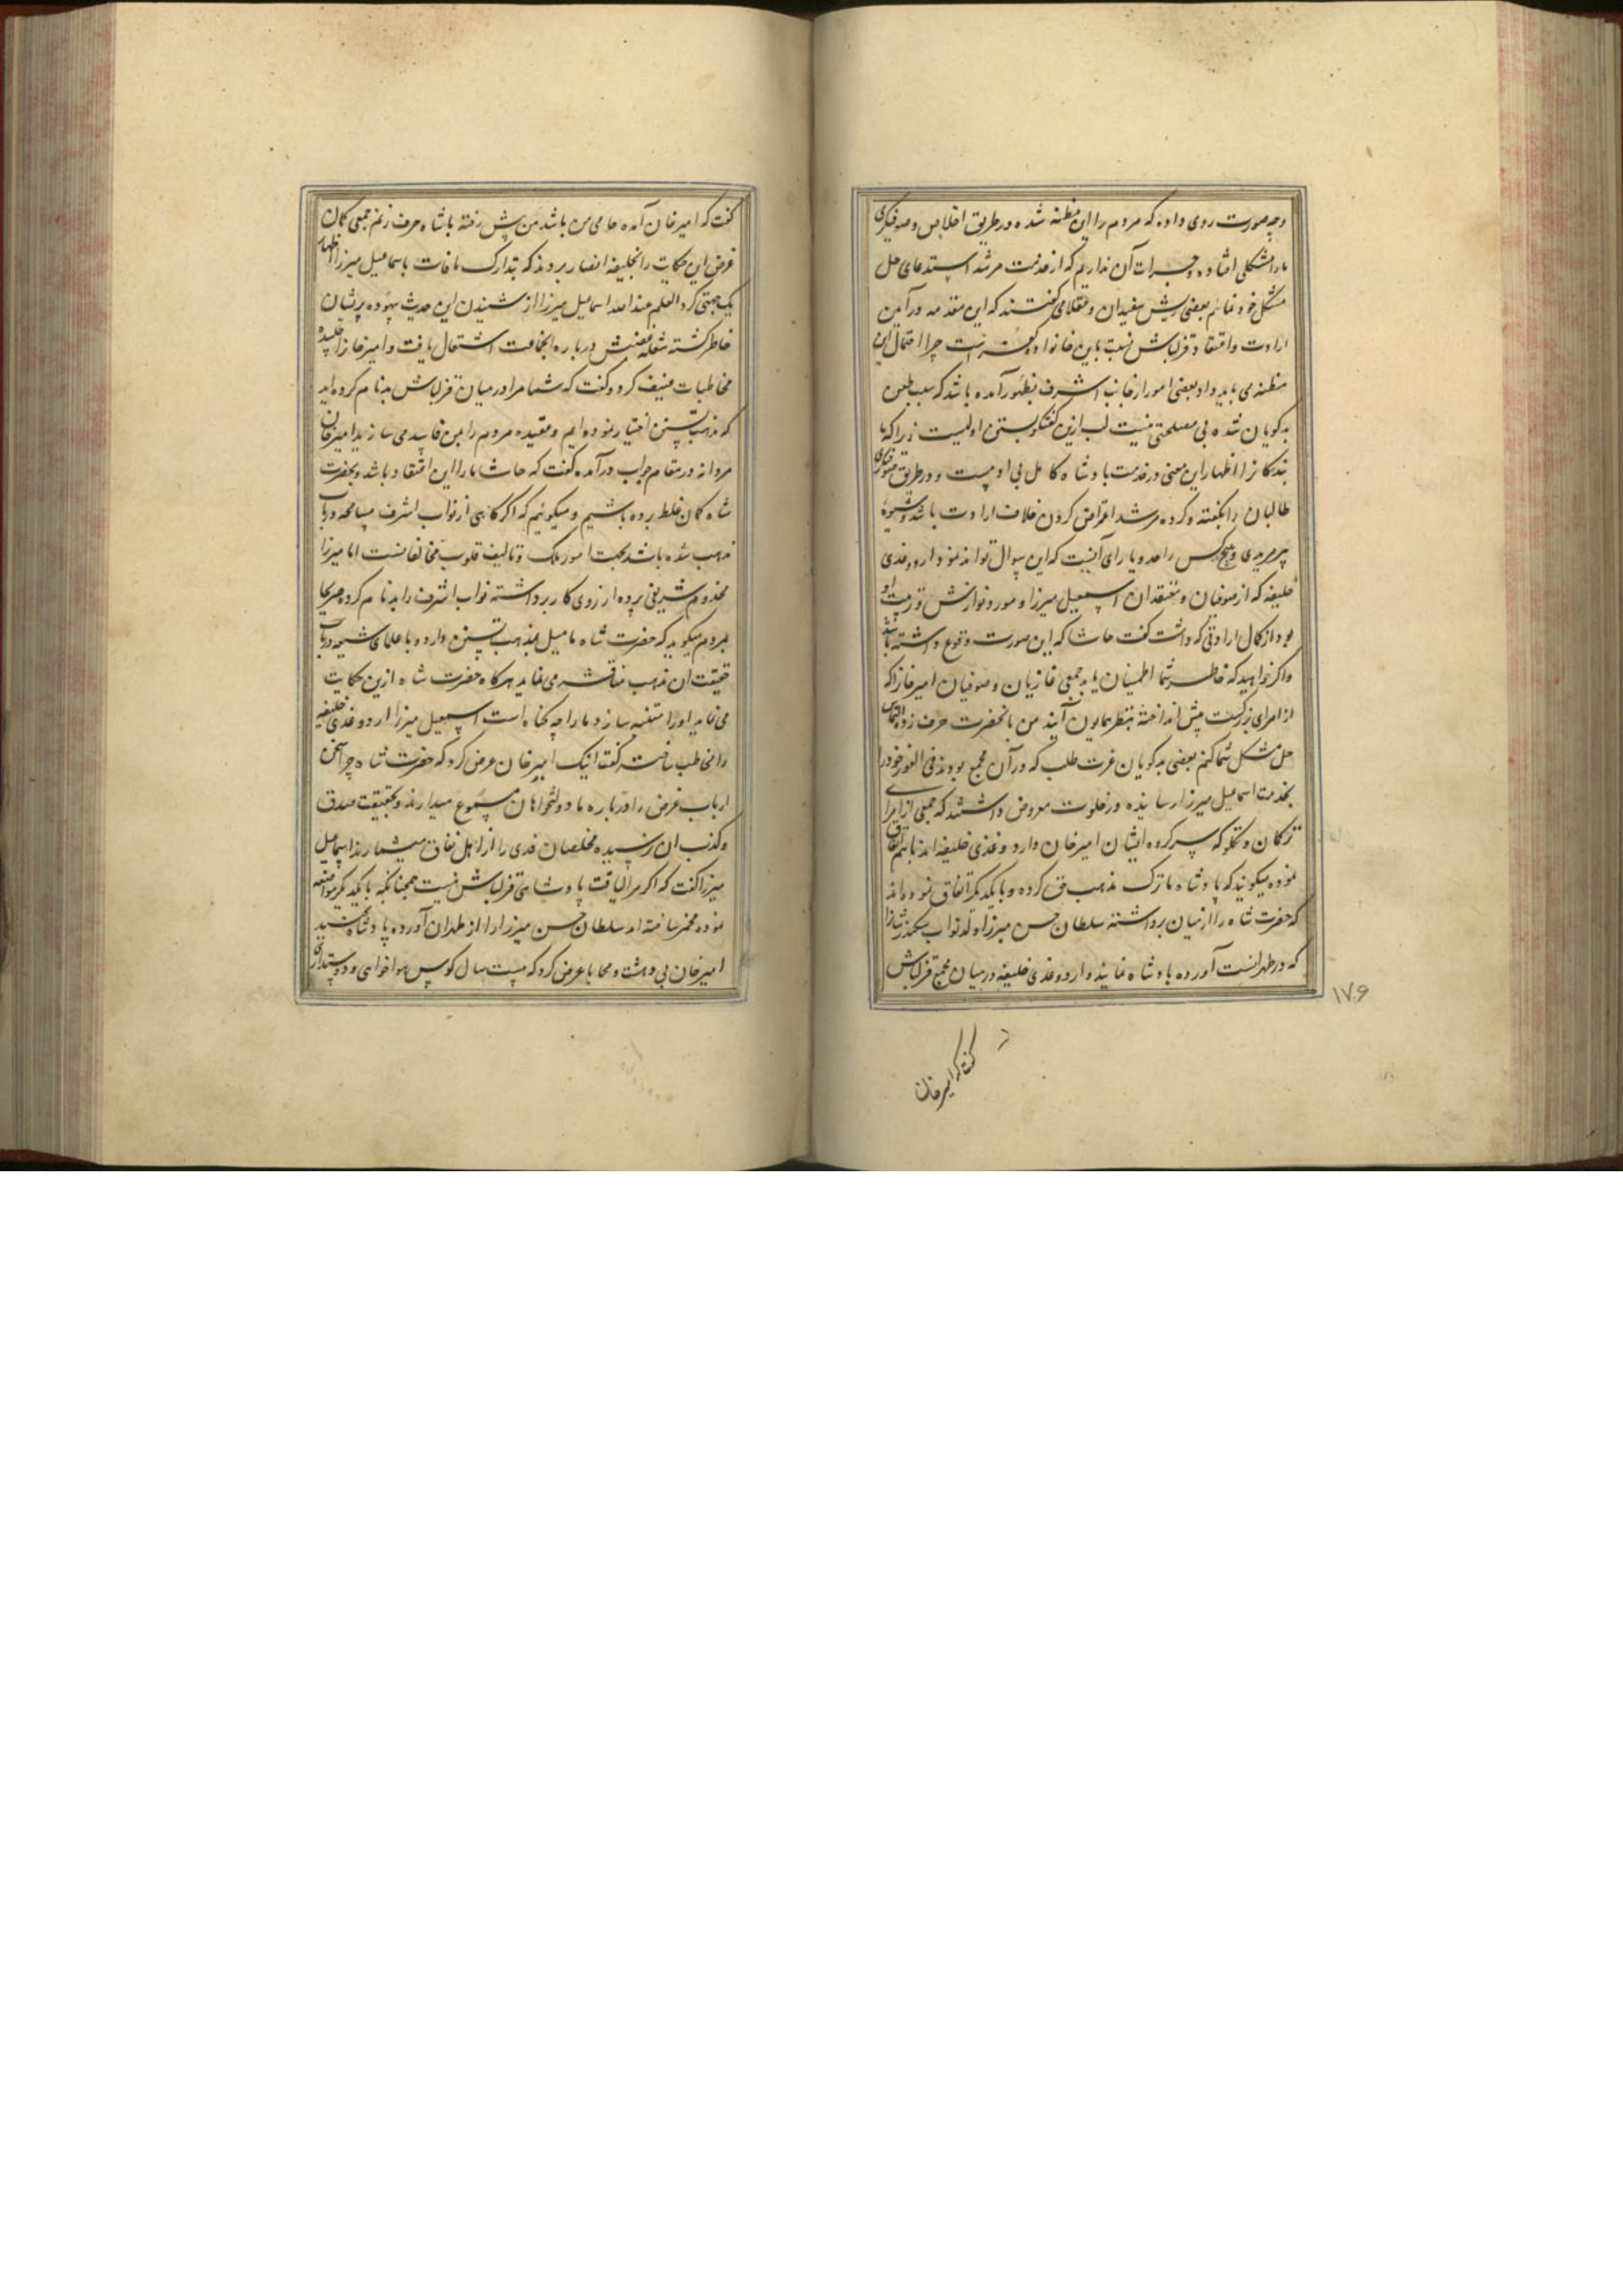 وچه صورت روی داده که مردم را این مظنه شده در طریق اخلاص و صوفیگری
ما را مشکلی افتاده و جرات آن نداریم که از خدمت مرشد استدعای حل
مشکل خود نمائیم بعضی ریش سفیدان و عقلا می گفتند که این مقدمه در آیین
ارادت و اعتقاد قزلباش نسبت باین خانواده کفر است چرا احتمال این
مظنه می باید داد بعضی امور از جانب اشرف بظهور آمده باشد که سبب طعن
بدگویان شده بی مصلحتی نیست لب ازین گفتگو بستن اولیست زیرا که ما
بندگانرا اظهار این معنی در خدمت پادشاه کامل بی ادبیست و در طریق
طالبان را بگفته و کرده مرشد اعتراض کردن خلاف ارادت باشد و شیوه
پیر مریدی و هیچکس را حد و یارای آن نیست که این سوال تواند نمود اردوغدی
خلیفه که از صوفیان و معتقدان اسمعیل میرزا و مورد نوازش و تربیت او
بود از کمال ارادتی که داشت گفت حاشا که این صورت وقوع داشته باشد
و اگر خواهید که خاطر شما اطمینان یابد جمعی غازیان و صوفیان امیر خانرا که
از امرای بزرگست پیش انداخته بنظر همایون آیند من بانحضرت حرف زده التماس
حل مشکل شما کنم بعضی بدگویان عزت طلب که در آن مجمع بودند فی الفور خود را
بخدمت اسماعیل میرزا رسانیده در خلوت معروض داشتند که جمعی از امرا
ترکمان و تکلو که سرکرده ایشان امیر خان و اردوغدی خلیفه اند باهم اتفاق
نموده میگویند که پادشاه ما ترک مذهب حق کرده و با یکدیگر اتفاق نموده اند
که حضرت شاه را از میان برداشته سلطان حسن میرزا ولد نواب سکندر شانرا
که در طهرانست آورده پادشاه نمایند و اردوغدی خلیفه در میان مجمع قزلباش
۱۷۶
گفت که امیر خان
گفت که امیر خان آمده حامی من باشد من پیش رفته با شاه حرف زنم جمعی کمان
غرض این حکایت را بخلیفه انصار بردند که بتدارک مافات باسماعیل میرزا اظهار
یک جهتی کرد العلم عند الله اسماعیل میرزا از شنیدن این حدیث بیهوده پریشان
خاطر گشته شعله غضبش درباره انجماعت اشتعال یافت و امیر خانرا طلبیده
مخاطبات عنیف کرد و گفت که شما مرا در میان قزلباش بدنام کرده اید
که مذهب تسنن اختیار نموده ایم و عقیده مردم را بمن فاسد می سازید امیر خان
مردانه در مقام جواب درآمده گفت که حاشا ما را این اعتقاد باشد و بحضرت
شاه گمان غلط برده باشیم و میگوئیم که اگر گاهی از نواب اشرف مسامحه در باب
مذهب شده باشد بجهت امور ملک و تالیف قلوب مخالفانست اما میرزا
مخدوم شریفی پرده از روی کار برداشته نواب اشرف را بدنام کرده صریحا
بمردم میگوید که حضرت شاه ما میل بمذهب تسنن دارد و با علمای شیعه در باب
حقیقت ان مذهب مناقشه می نماید هرگاه حضرت شاه ازین حکایت
می نماید او را متنبه سازد ما را چه گناه است اسمعیل میرزا اردوغدی خلیفه
را مخاطب ساخته گفت اینک امیر خان عرض کرد که حضرت شاه چرا سخن
ارباب غرض را درباره ما دولتخواهان مسموع میدارند و بحقیقت صدق
و کذب ان نرسیده مخلصان فدوی را از اهل نفاق میشمارند اسماعیل
میرزا گفت که اگر مرا لیاقت پادشاهی قزلباش نیست همچنانکه با یکدیگر مواضعه
نموده محضر ساخته اید سلطان حسن میرزا را از طهران آورده پادشاه کنید
امیر خان بی دهشت و محابا عرض کرد که بیست سال کوس هواخواهی و دوستداری